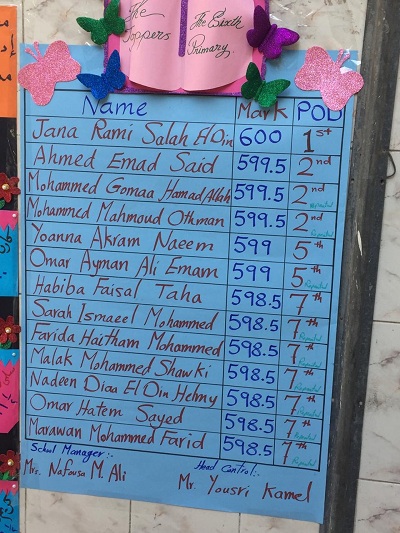 The Toppers
The Sixth Primary.
Name Mark POD
Jana Rami Salah El Din 600 1st
Ahmed Emad Said 599.5 2nd
Mohammed Gomaa Hamad Allah 599.5 2nd Repeated
Mohammed Mahmoud Othman 599.5 2nd Repeated
Yoanna Akram Naeem 599 5th
Omar Ayman Ali Emam 599 5th Repeated
Habiba Faisal Taha 598.5 7th
Sarah Ismaeel Mohammed 598.5 7th Repeated
Farida Haitham Mohammed 598.5 7th Repeated
Malak Mohammed Shawki 598.5 7th Repeated
Nadeen Diaa El Din Helmy 598.5 7th Repeated
Omar Hatem Sayed 598.5 7th Repeated
Marawan Mohammed Farid 598.5 7th Repeated
School Manager:- Head Control:-
Mrs. Nafousa M. Ali Mr. Yousri Kamel